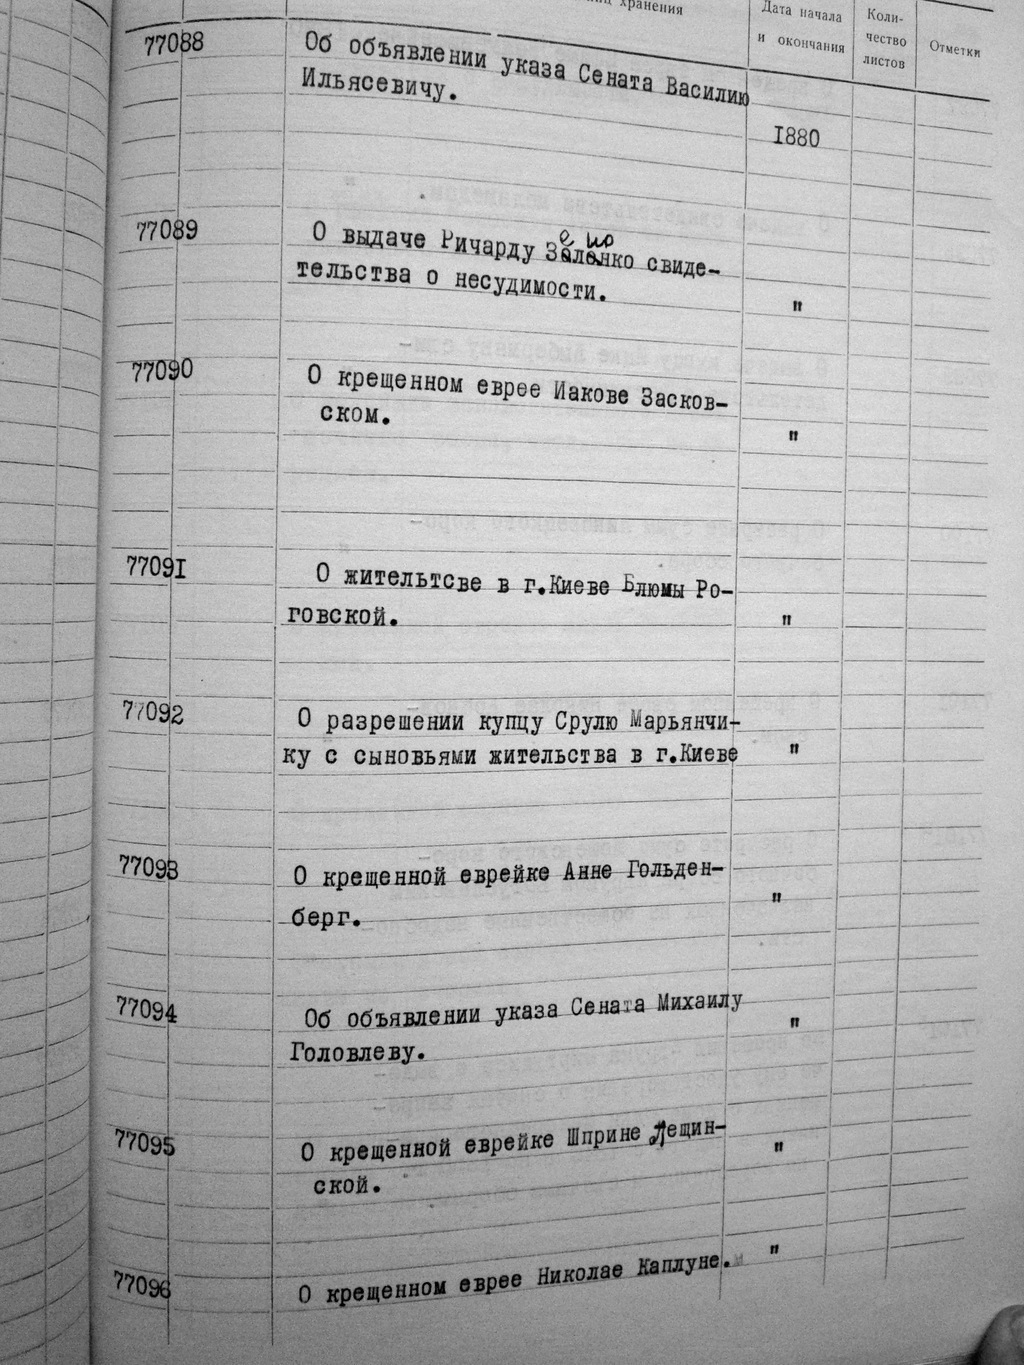 хранения
Дата начала
и окончания
Коли-
чество
листов
Отметки
77088 Об объявлении указа Сената Василию
Ильясевичу.
1880
77089 О выдаче Ричарду Зеленко свиде-
тельства о несудимости. "
77090 О крещенном еврее Иакове Засков-
ском. "
77091 О жительтсве в г.Киеве Блюмы Ро-
говской. "
77092 О разрешении купцу Срулю Марьянчи-
ку с сыновьями жительства в г.Киеве "
77093 О крещенной еврейке Анне Гольден-
берг. "
77094 Об объявлении указа Сената Михаилу
Головлеву. "
77095 О крещенной еврейке Шприне Лещин-
ской. "
77096 О крещенном еврее Николае Каплуне. "